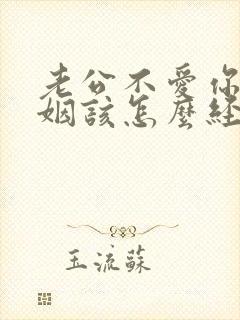 老公不愛你
姻該怎麼經
玉流蘇